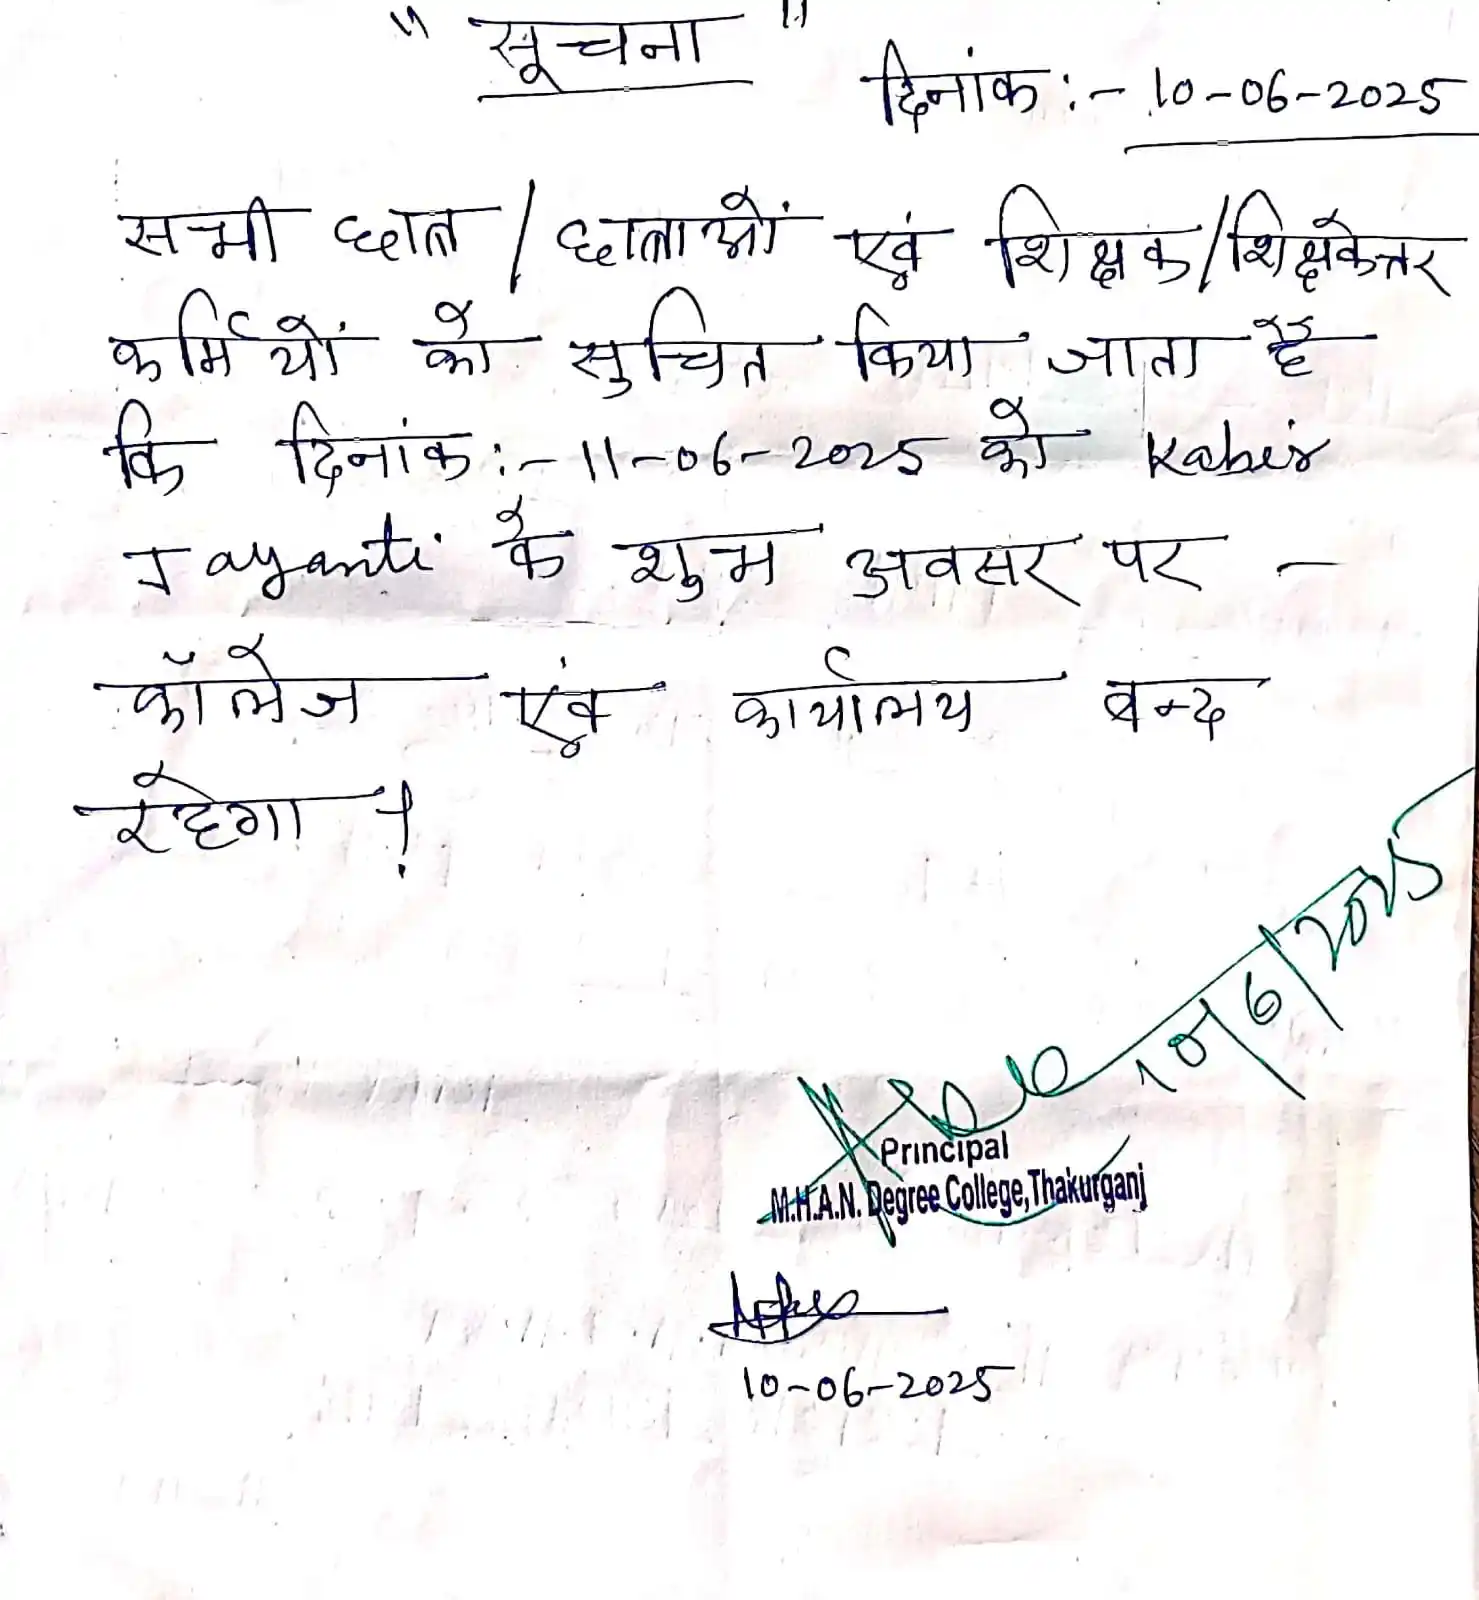 " सूचना "
दिनांक :- 10-06-2025
सभी छात्र / छात्राओं एवं शिक्षक/शिक्षकेत्तर
कर्मियों को सुचित किया जाता है
कि दिनांक :- 11-06-2025 को Kabir
Jayanti के शुभ अवसर पर -
कॉलेज एवं कार्यालय बन्द
रहेगा !
10/6/2025
Principal
M.H.A.N. Degree College, Thakurganj
10-06-2025